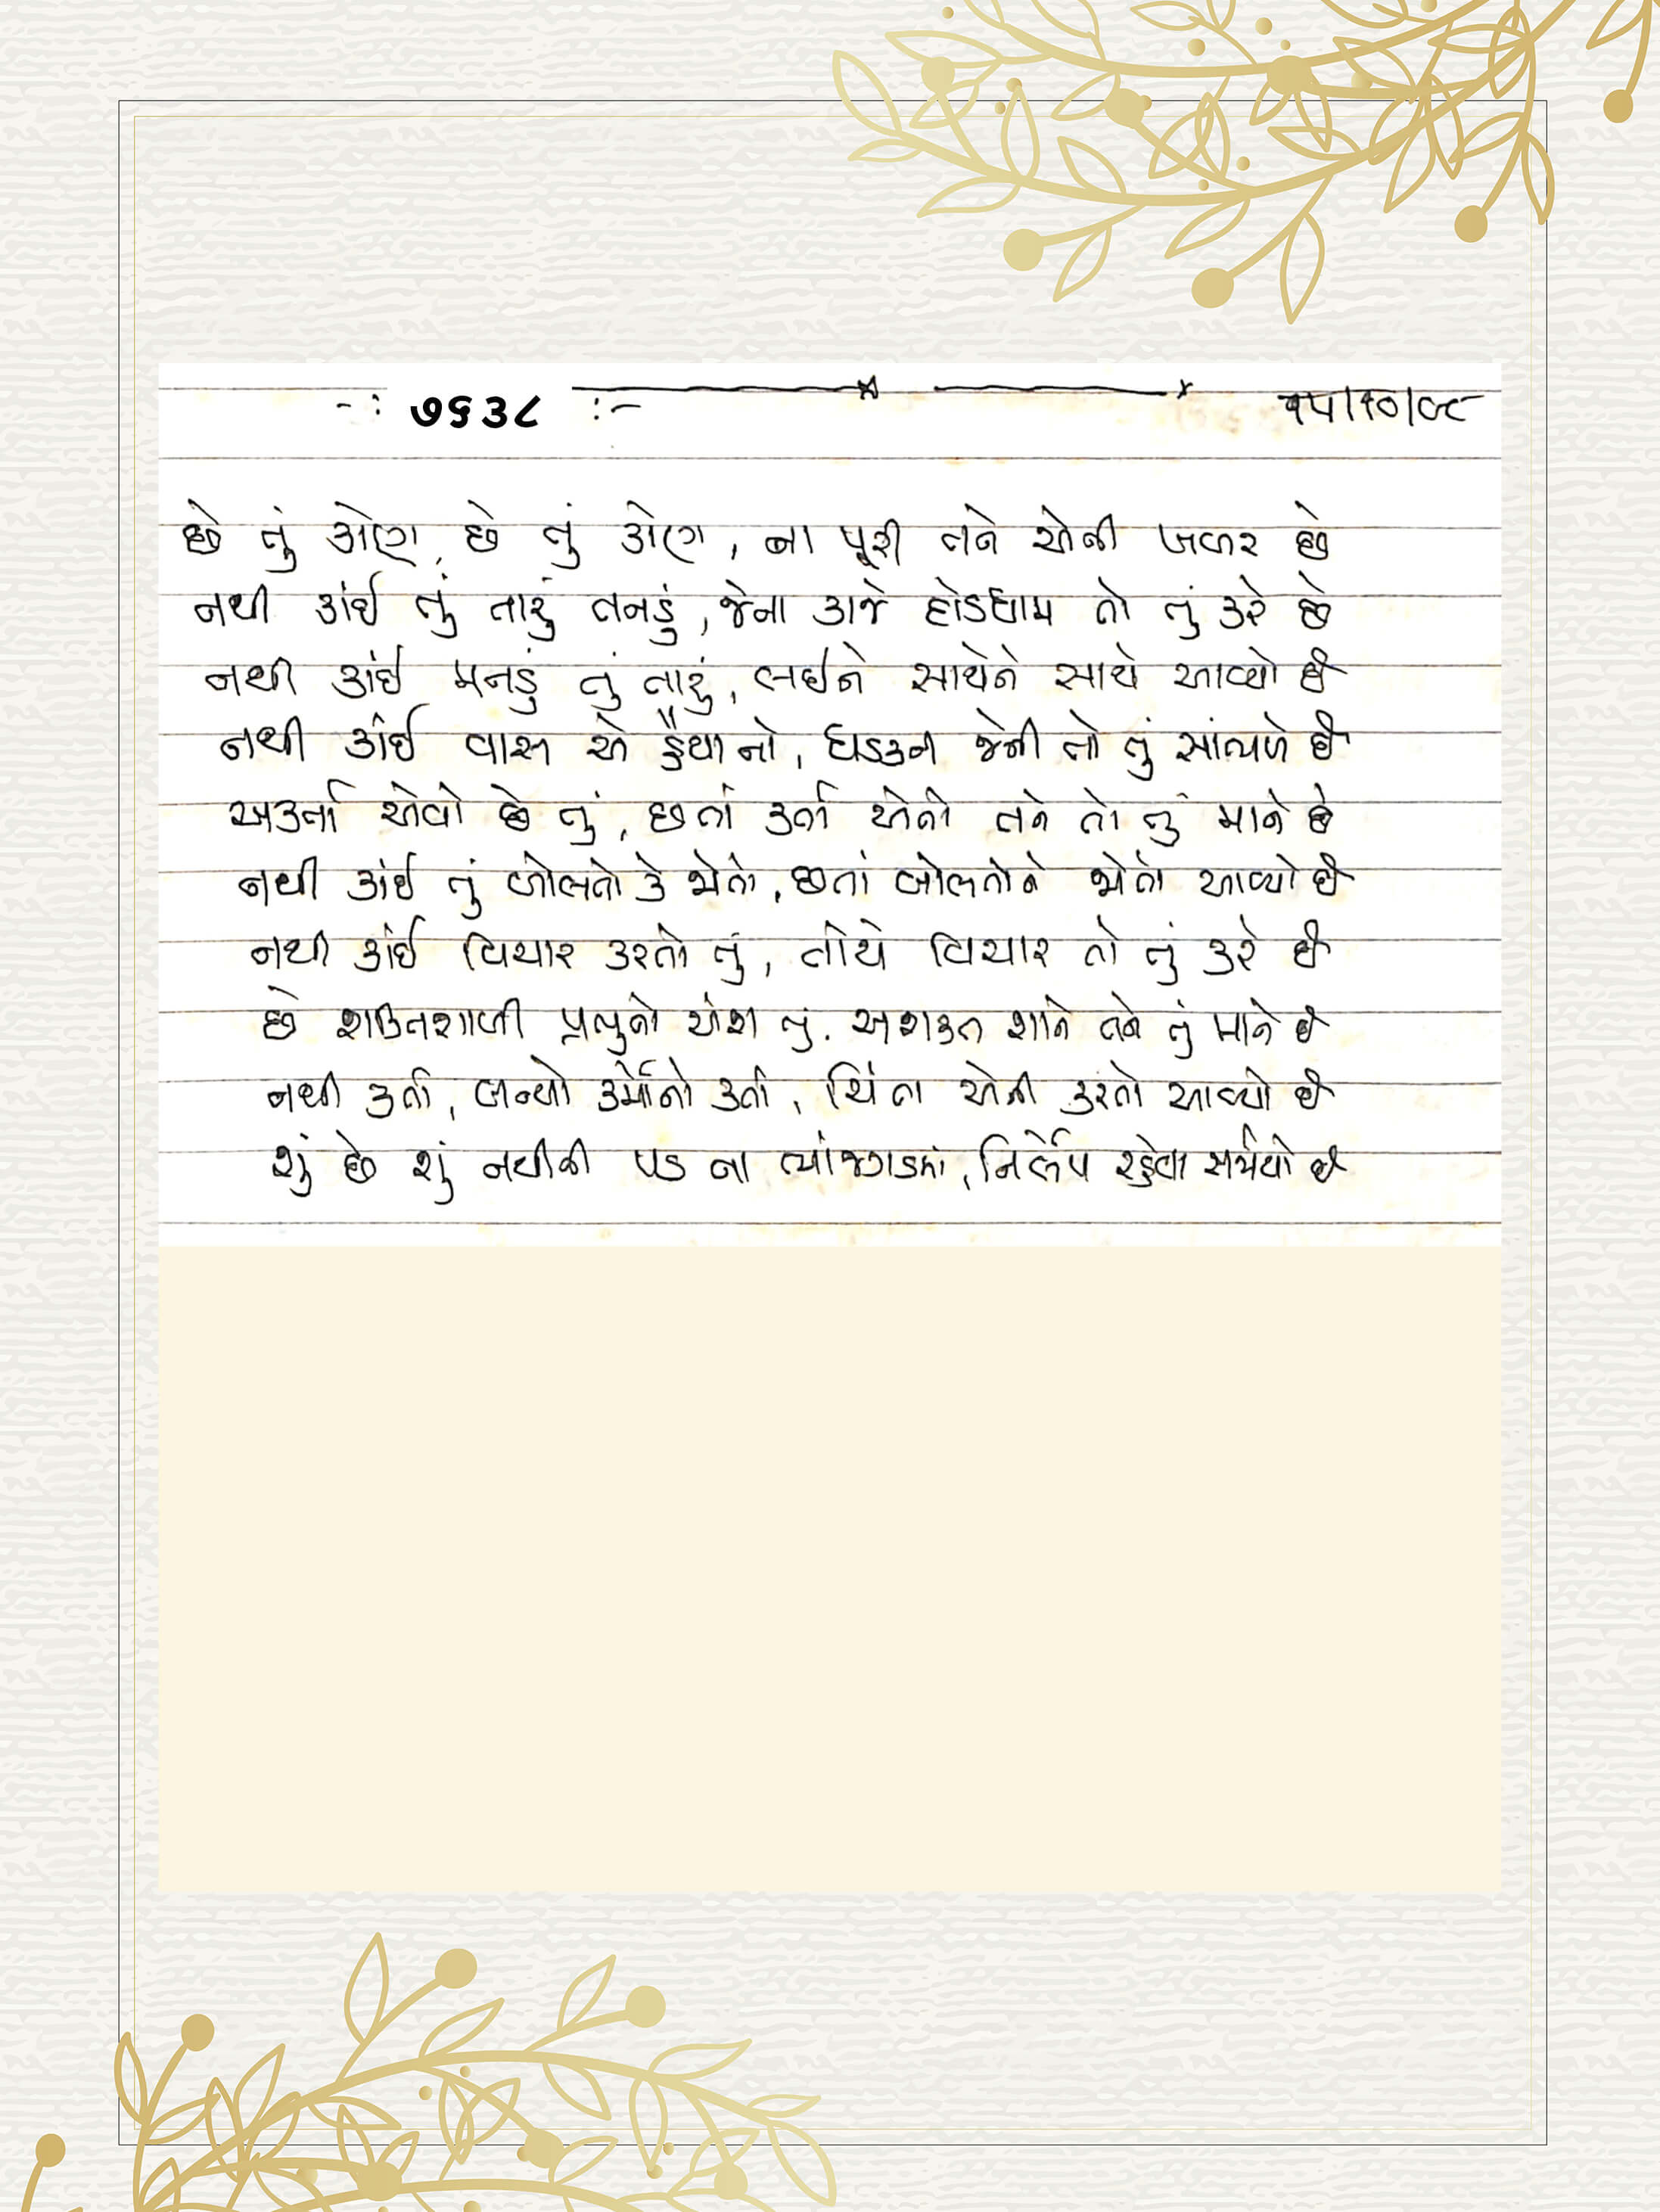 -: ૭૬૩૮ :- ૧૫/૧૦/૯૮
છે તું કોણ, છે તું કોણ, ના પૂરી તને એની ખબર છે
નથી કાંઈ તું તારું તનડું, જેના કાજે દોડધામ તો તું કરે છે
નથી કાંઈ મનડું તું તારું, લઈને સાથેને સાથે આવ્યો છે
નથી કાંઈ વાસ એ હૈયાનો, ધડકન જેની તો તું સાંભળે છે
અકર્તા એવો છે તું, છતાં કર્તા એનો તને તો તું માને છે
નથી કાંઈ તું બોલતો કે જોતો, છતાં બોલતોને જોતો આવ્યો છે
નથી કાંઈ વિચાર કરતો તું, તોયે વિચાર તો તું કરે છે
છે શક્તિશાળી પ્રભુનો અંશ તું. અશક્ત શાને તને તું માને છે
નથી કર્તા, બન્યો કર્મોનો કર્તા, ચિંતા એની કરતો આવ્યો છે
શું છે શું નથીની પડ ના ભાંજગડમાં, નિર્લેપ રહેવા સર્જાયો છે